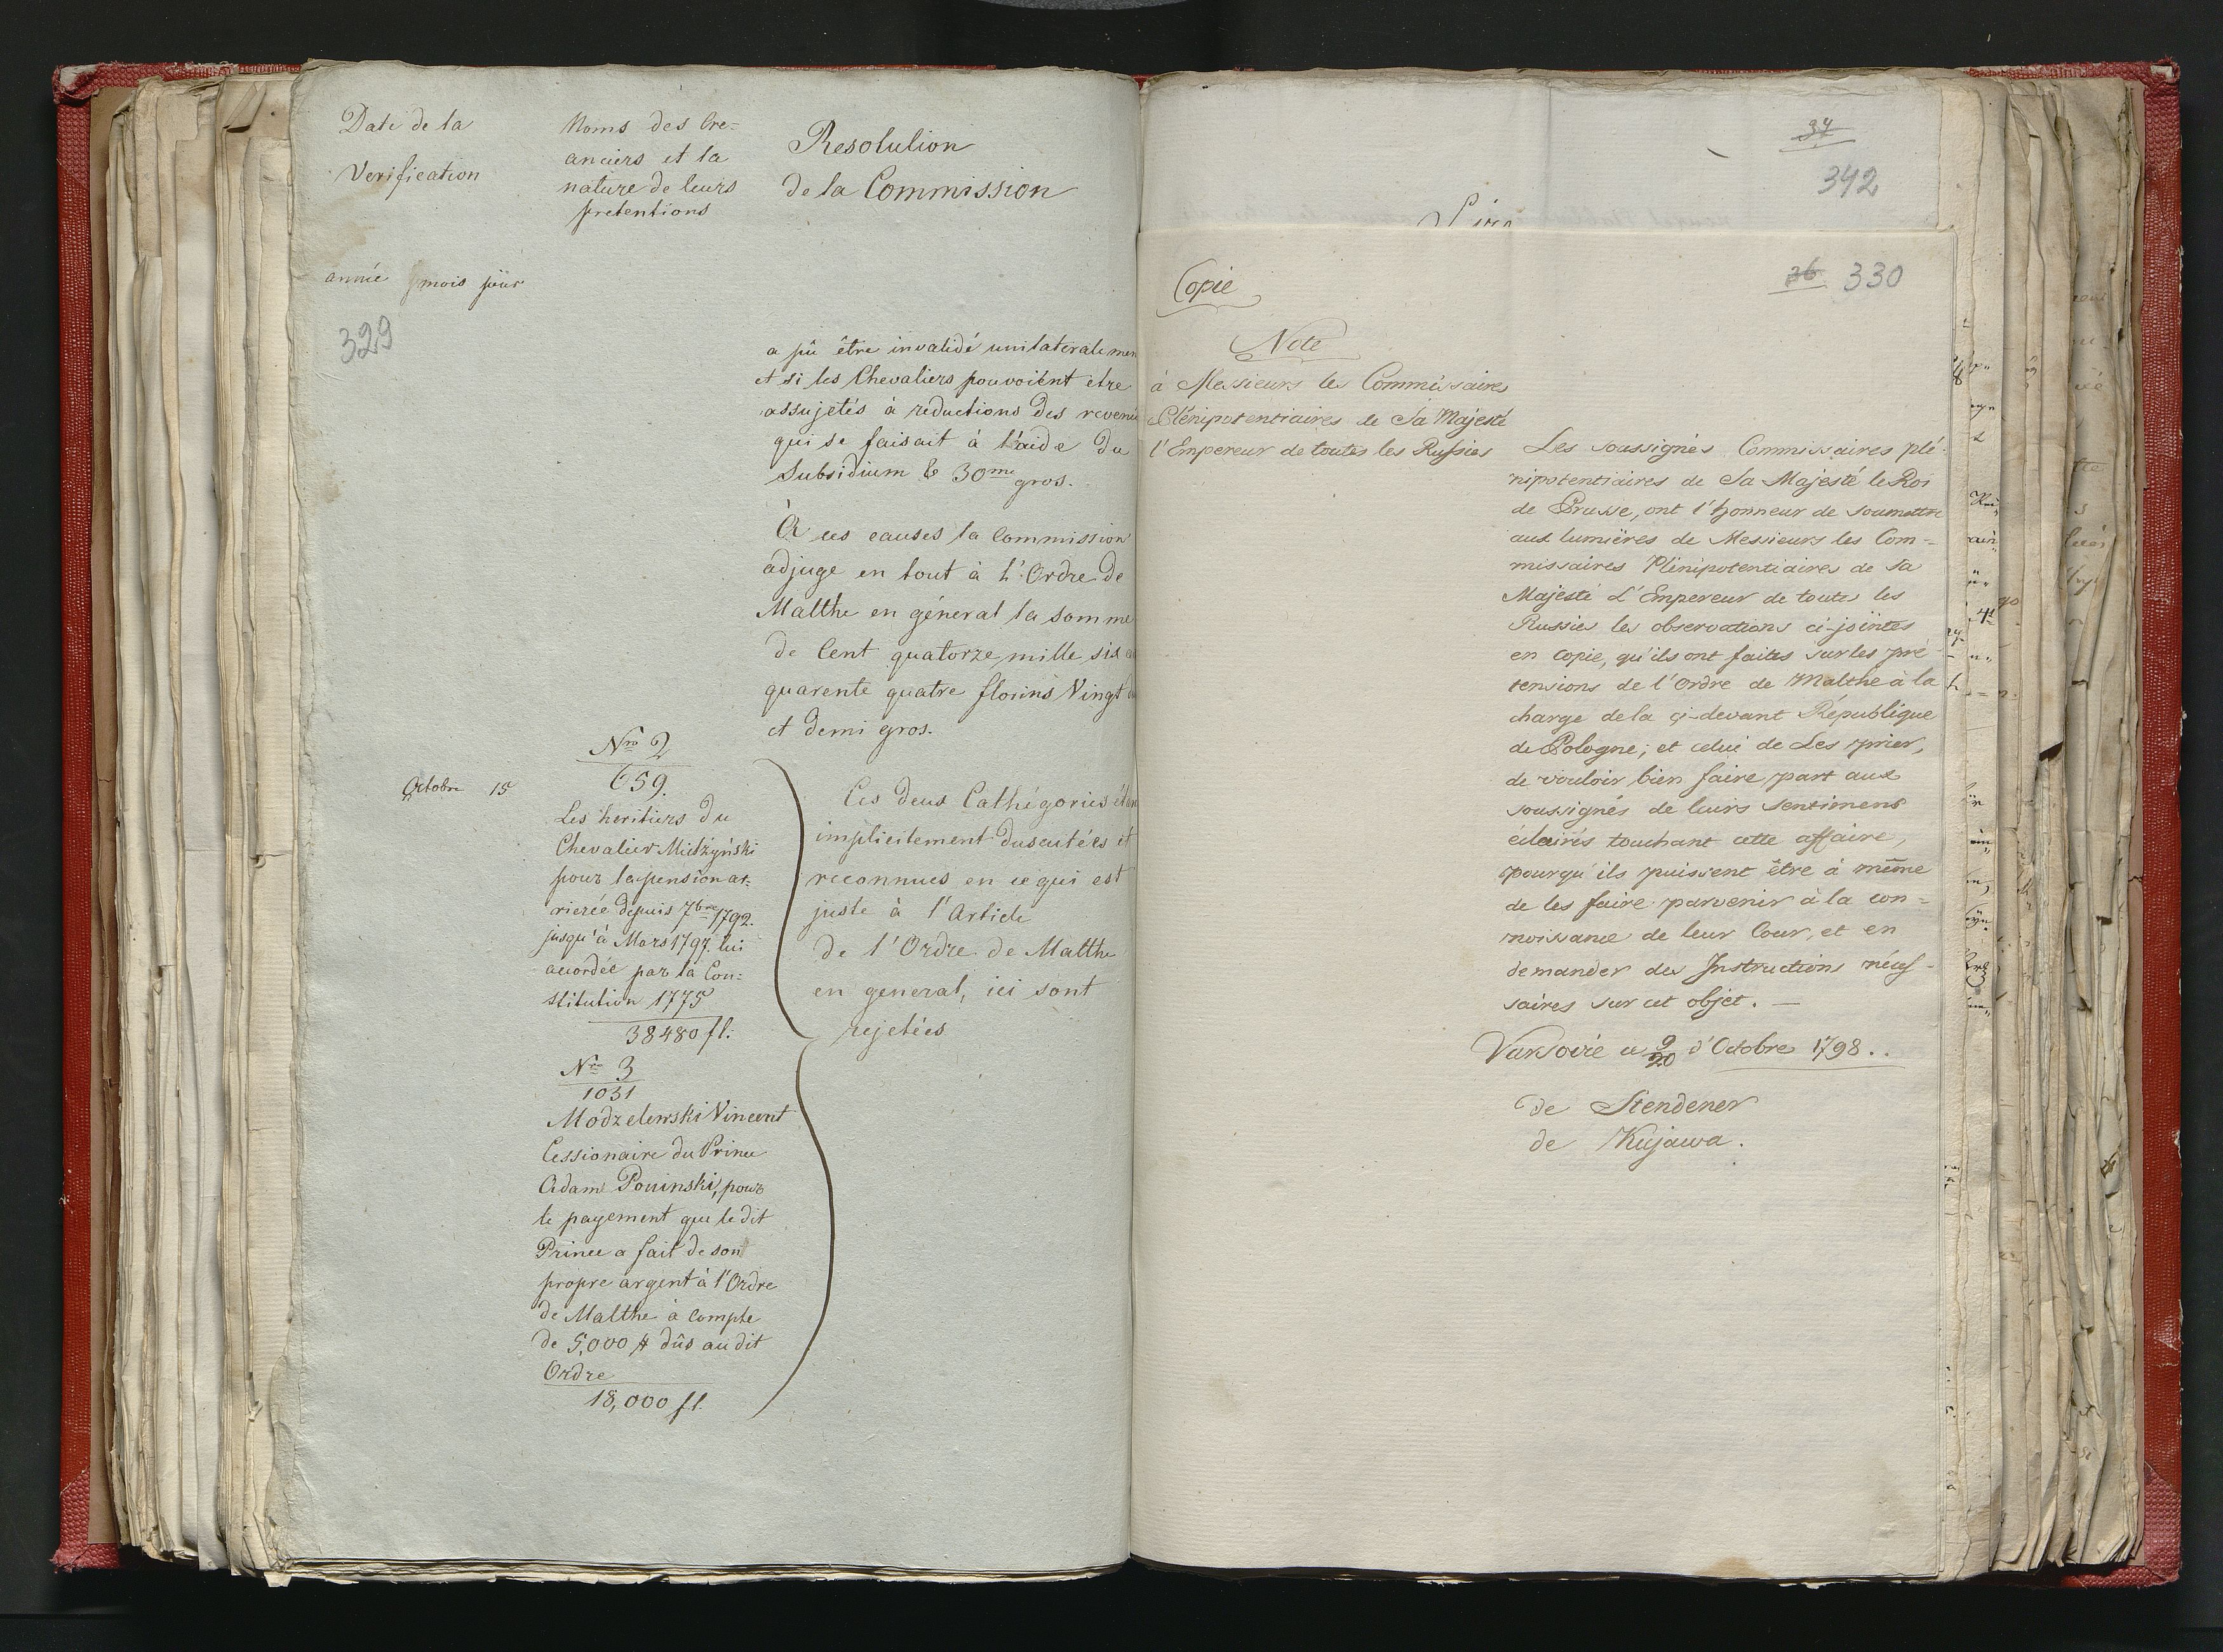 Date de la
Verification
Noms des Cre=
anciers et la
nature de leurs
pretentions
Resolution
de la Commission
année mois jour
329
a pû être invalidé unilateralemen
et si les Chevaliers pouvoient etre
assujetés à reductions des revenu
qui se faisait à l'aide du
Subsidium & 30me gros.
À ces causes la Commission
adjuge en tout à L'Ordre de
Malthe en géneral la somme
de Cent quatorze mille six
quarente quatre florins Vingt
et demi gros.
Octobre 15
Nro 2
659.
Les heritiers du
Chevalier Mielzyński
pour la pension ar=
rierée depuis 7bre 1792.
jusqu'à Mars 1797. lui
accordée par la Con=
stitution 1775
38480 fl:
Nro 3
1031
Modzelewski Vincent
Cessionaire du Prince
Adam Poninski, pour
le payement que le dit
Prince a fait de son
propre argent à l'Ordre
de Malthe à compte
de 5,000 # dûs au dit
Ordre
18,000 fl.
Ces deux Cathégories étan
implicitement discutées et
reconnues en ce qui est
juste à l'Article
de l'Ordre de Malthe
en general, ici sont
rejetées
34
342
Sire
36 330
Copie
Note
à Messieurs les Commissaires
Plénipotentiaires de Sa Majesté
l'Empereur de toutes les Russies
Les soussignés Commissaires plé-
nipotentiaires de Sa Majesté le Roi
de Prusse, ont l'honneur de soumettre
aux lumières de Messieurs les Com=
missaires Plénipotentiaires de Sa
Majesté L'Empereur de toutes les
Russies les observations ci-jointes
en copie, qu'ils ont faites sur les pré
tensions de l'Ordre de Malthe à la
charge de la çi-devant République
de Pologne; et celui de Les prier,
de vouloir bien faire part aux
soussignés de leurs sentimens
éclairés touchant cette affaire,
pourqu'ils puissent être à même
de les faire parvenir à la con=
noissance de leur Cour, et en
demander des Instructions néces-
saires sur cet objet. —
Varsovie ce 9/20 d'Octobre 1798..
de Stendener
de Kujawa.